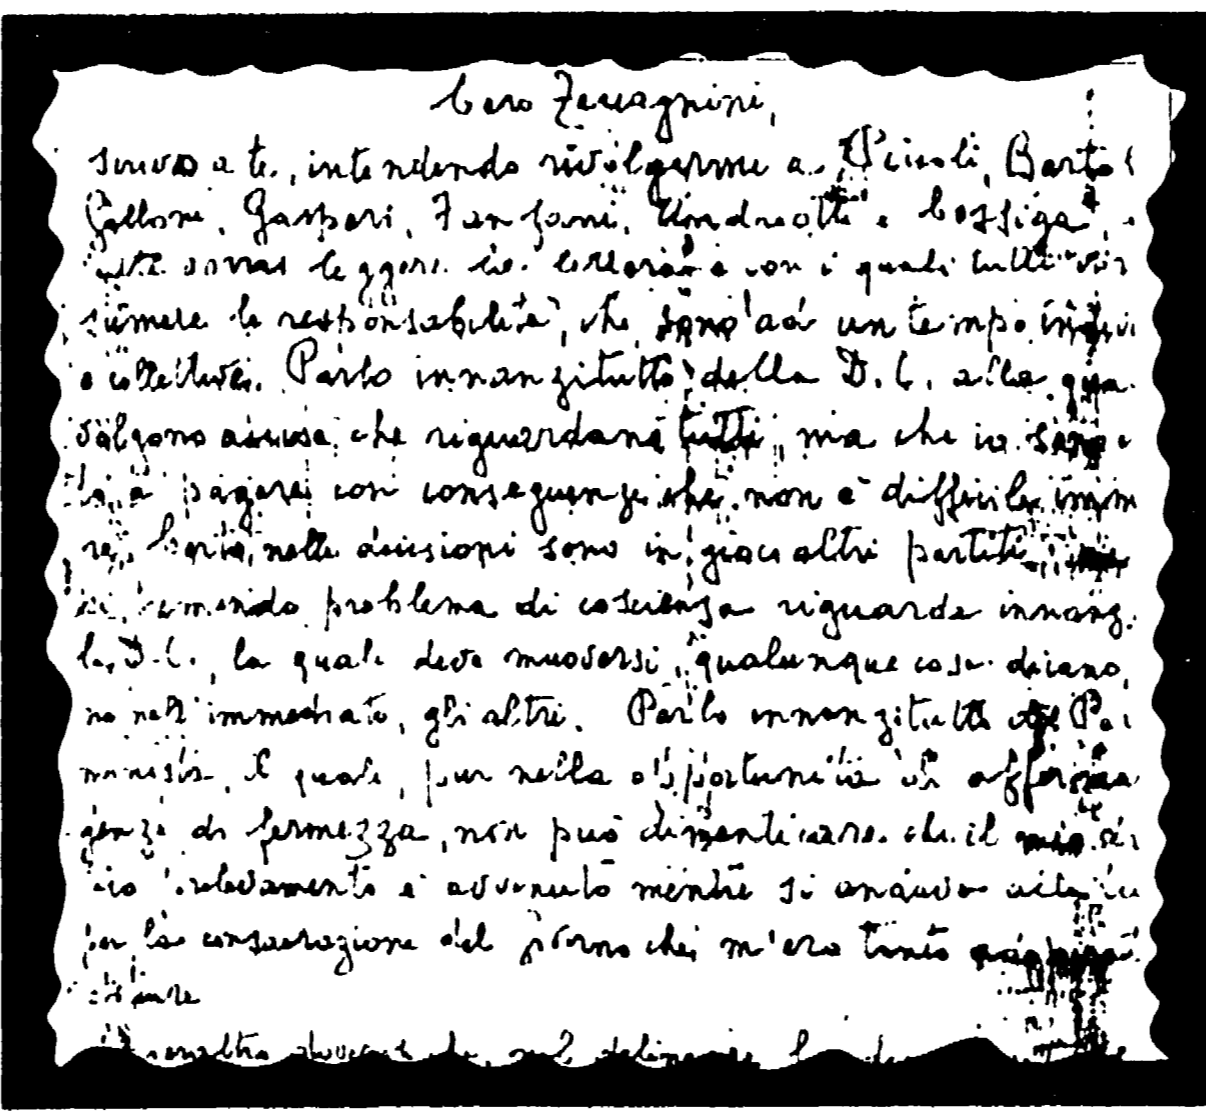 Caro Zaccagnini,
scrivo a te, intendendo rivolgermi a Piccoli, Barto
Galloni, Gaspari, Fanfani, Andreotti e Cossiga
vorrai leggere la lettera e con i quali tutti vor
sumere le responsabilità, che sono ad un tempo indivi
e collettive. Parlo innanzitutto della D.C. alla qua
volgono accuse che riguardano tutti, ma che io sono
a pagare con conseguenze che non è difficile imm
re. Certo, nelle decisioni sono in gioco altri partiti
tremendo problema di coscienza riguarda innanz
la D.C., la quale deve muoversi, qualunque cosa dicano,
no nell'immediato, gli altri. Parlo innanzitutto del Par
munista, il quale, pur nella opportunità di afferma
genze di fermezza, non può dimenticare che il mio
prelevamento è avvenuto mentre si andava alla
per la consacrazione del Governo che m'ero tanto
tuire